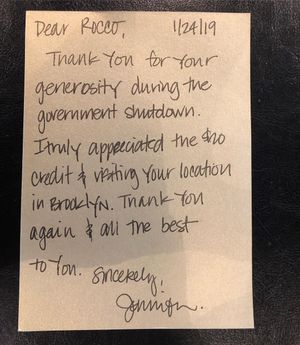 Dear Rocco, 1/24/19
Thank You for Your
generosity during the
government shutdown.
I truly appreciated the $20
credit & visiting Your location
in Brooklyn. Thank You
again & all the best
to You. Sincerely,
Jennifer.